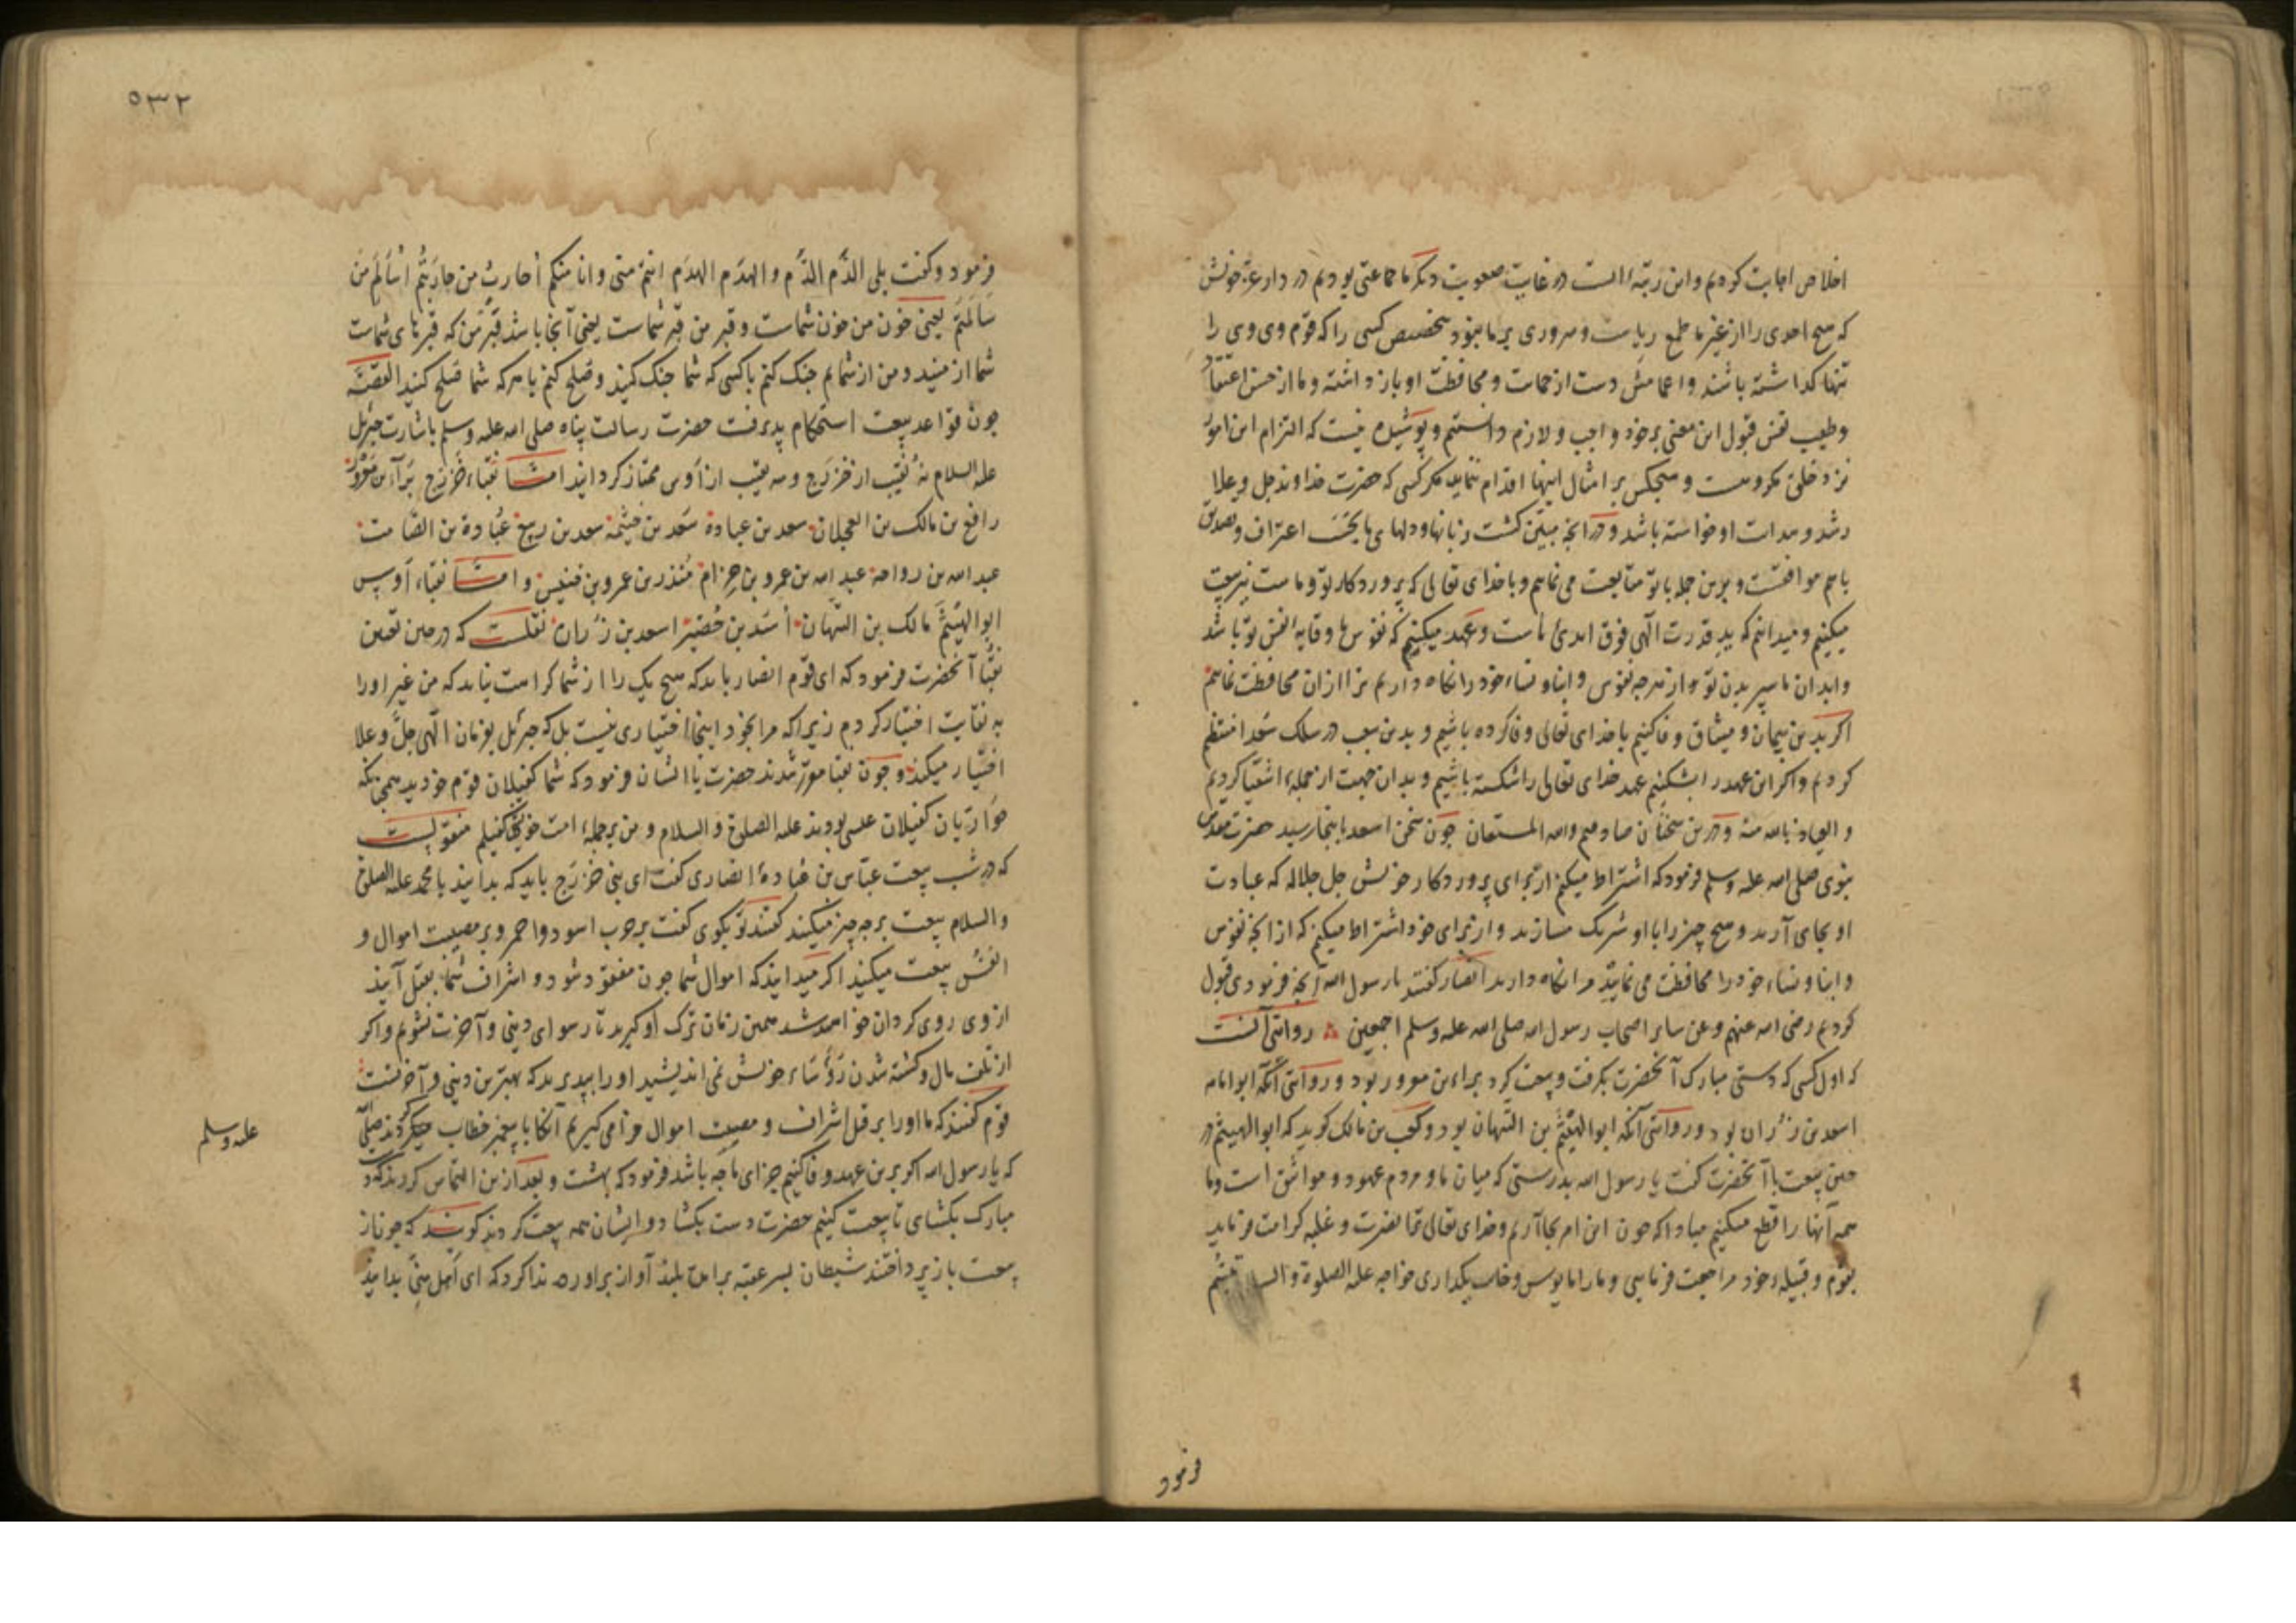 اخلاص اجابت کردیم واین رتبه‌ایست در غایت صعوبت دیگر ما جماعتی بودیم در دار عزّ خویش
که هیچ احدی را از غیر ما طمع ریاست و سروری بر ما نبود تخصیص کسی را که قوم وی وی را
تنها کذاشته باشند و اعمامش دست از حمایت و محافظت او باز داشته و ما از حسن اعتقاد
وطیب نفس قبول این معنی بر خود واجب و لازم دانستیم و پوشیده نیست که التزام این امور
نزد خلق مکروهست و هیچکس بر امثال اینها اقدام ننماید مکر کسی که حضرت خداوند جل وعلا
رشد و هدایت او خواسته باشد و در آنچه مبیّن کشت زبانها و دلهای ما بحسب اعتراف و تصدیق
با هم موافقست و برین جمله با تو متابعت می نماییم و با خدای تعالی که پروردکار تو و ماست نیز بیعت
میکنیم و میدانیم که ید قدرت الهی فوق ایدئ ماست و عهد میکنیم که نفوس ما وقایهٔ نفس تو باشد
و ابدان ما سپر بدن تو و از هرچه نفوس و ابنا و نساء خود را نکاه داریم ترا از ان محافظت نماییم
اکر بدین پیمان و میثاق وفا کنیم با خدای تعالی وفا کرده باشیم و بدین سبب در سلک سعدا منتظم
کردیم و اکر این عهد را بشکنیم عهد خدای تعالی را شکسته باشیم و بدان جهت از جملهٔ اشقیا کردیم
و العیاذ بالله منه و درین سخنان صادقیم والله المستعان چون سخن اسعد باینجا رسید حضرت مقدس
نبوی صلی الله علیه وسلم فرمود که اشتراط میکنم از برای پروردکار خویش جل جلاله که عبادت
او بجای آرید و هیچ چیز را با او شریک مسازید و از برای خود اشتراط میکنم که از انچه نفوس
و ابنا و نساء خود را محافظت می نمایید مرا نکاه دارید انصار کفتند یا رسول الله آنچه فرمودی قبول
کردیم رضی الله عنهم وعن سایر اصحاب رسول الله صلی الله علیه وسلم اجمعین روایتی آنست
که اول کسی که دستی مبارک آنحضرت بکرفت و بیعت کرد براء بن معرور بود و روایتی آنکه ابو امامه
اسعد بن زراره بود و روایتی آنکه ابوالهیثم بن التیهان بود و کعب بن مالک کوید که ابوالهیثم در
حین بیعت با آنحضرت کفت یا رسول الله بدرستی که میان ما و مردم عهود و مواثیق است وما
همه آنها را قطع میکنیم مبادا که چون این امر بجا آریم و خدای تعالی ترا نصرت و غلبه کرامت فرماید
بقوم و قبیله خود مراجعت فرمایی و ما را مایوس و خایب بکذاری خواجه علیه الصلوة والسلام تبسّم
فرمود
۵۳۲
فرمود و کفت بلی الدّم الدّم والهدَم الهدَم انتم منّی وانا منکم اُحاربُ من حاربتُم اُسالم من
سالمتم یعنی خون من خون شماست و قبر من قبر شماست یعنی آنجا باشد قبر من که قبرهای شماست
شما از منید و من از شمایم جنک کنم با کسی که شما جنک کنید و صلح کنم با هرکه شما صلح کنید القصّه
چون قواعد بیعت استحکام پذیرفت حضرت رسالت پناه صلی الله علیه وسلم باشارت جبرئیل
علیه السلام نه نقیب از خزرج و سه نقیب از اوس ممتاز کردانید امّا نقباء خزرج براء بن معرور
رافع بن مالک بن العجلان سعد بن عباده سعد بن خیثمه سعد بن ربیع عباده بن الصّامت
عبد الله بن رواحه عبد الله بن عمرو بن حرام منذر بن عمرو بن خنیس و امّا نقباء اوس
ابوالهیثم مالک بن التیهان اُسید بن حُضیر اسعد بن زراره نقلست که در حین تعیین
نقبا آنحضرت فرمود که ای قوم انصار باید که هیچ یک را از شما کراهت نیاید که من غیر او را
به نقابت اختیار کردم زیرا که مرا بخود اینجا اختیاری نیست بل که جبرئیل بفرمان الهی جلّ وعلا
اختیار میکند و چون نقبا مقرر شدند حضرت با ایشان فرمود که شما کفیلان قوم خودید همچنانکه
حواریان کفیلان عیسی بودند علیه الصلوة والسلام و من بر جملهٔ امت خویش کفیلم منقولیست
که در شب بیعت عباس بن عبادهٔ انصاری کفت ای بنی خزرج باید که بدانید با محمد علیه الصلوة
والسلام بیعت بر چه چیز میکنید کفتند تو بکوی کفت بر حرب اسود و احمر و بر مصیبت اموال و
انفس بیعت میکنید اکر میدانید که اموال شما چون مفقود شود و اشراف شما بقتل آیند
از وی روی کردان خواهید شد همین زمان ترک او کیرید تا رسوای دینی و آخرت نشویم و اکر
از تلف مال و کشته شدن رؤساء خویش نمی اندیشید او را بپذیرید که بهترین دینی و آخرتست
قوم کفتند که ما او را بر قتل اشراف و مصیبت اموال فرا می کیریم آنکاه با پیغمبر خطاب میکردند صلی الله
علیه وسلم
که یا رسول الله اکر برین عهد وفا کنیم جزای ما چه باشد فرمود که بهشت و بعد ازین التماس کردند که دست
مبارک بکشای تا بیعت کنیم حضرت دست بکشاد و ایشان همه بیعت کردند کویند که چون از
بیعت باز پرداختند شیطان بسر عقبه برامد بلند آواز براورده ندا کرد که ای اهل منیً بدانید